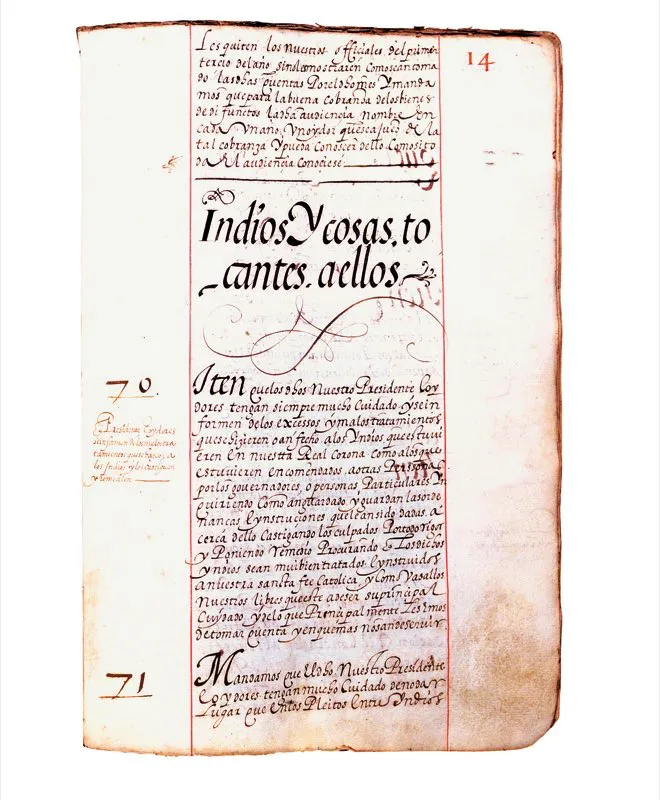 14
Les quiten los nuestros officiales del primer
tercio del año sinolemostraren como sean toma
do las dhas quentas Por el dho mes Y manda
mos que para la buena cobranza de los bienes
de difunctos la dha audiencia nombre en
cada Vn año Vn oydor que sea juez de la
tal cobranza Ypueda Conoscer dello Como si to
da el audiencia conociese
Indios Y cosas. to
cantes. a ellos
70.
Iten que los dhos Nuestro Presidente E oy
dores tengan siempre mucho Cuidado Y se in
formen de los excessos y malos tratamientos
que se hizieren o an fecho a los Yndios que estuvi
eren En nuestra Real Corona como a los que
estuvieren en comendados, a otras Personas
por los governadores, o personas Particulares In
quiriendo Como an guardado y guardan las orde
nancas E ynstruciones que le an sido dadas a
cerca dello Castigando los culpados Por todo rigor
y Poniendo remedio Procurando q Los dichos
yndios sean mui bien tratados E ynstruidos
a nuestra sancta fee Catolica, y como Vasallos
Nuestros libres que este a de ser su principal
Cuydado, y es lo que Principalmente Les emos
de tomar quenta y en que mas nos an de servir
Presidente E oydores
los Indios y los castiguen
y remedien
71
Mandamos que El dho Nuestro Presidente
E oydores tengan mucho Cuidado de no dar
Lugar que En los Pleitos Entre Yndios